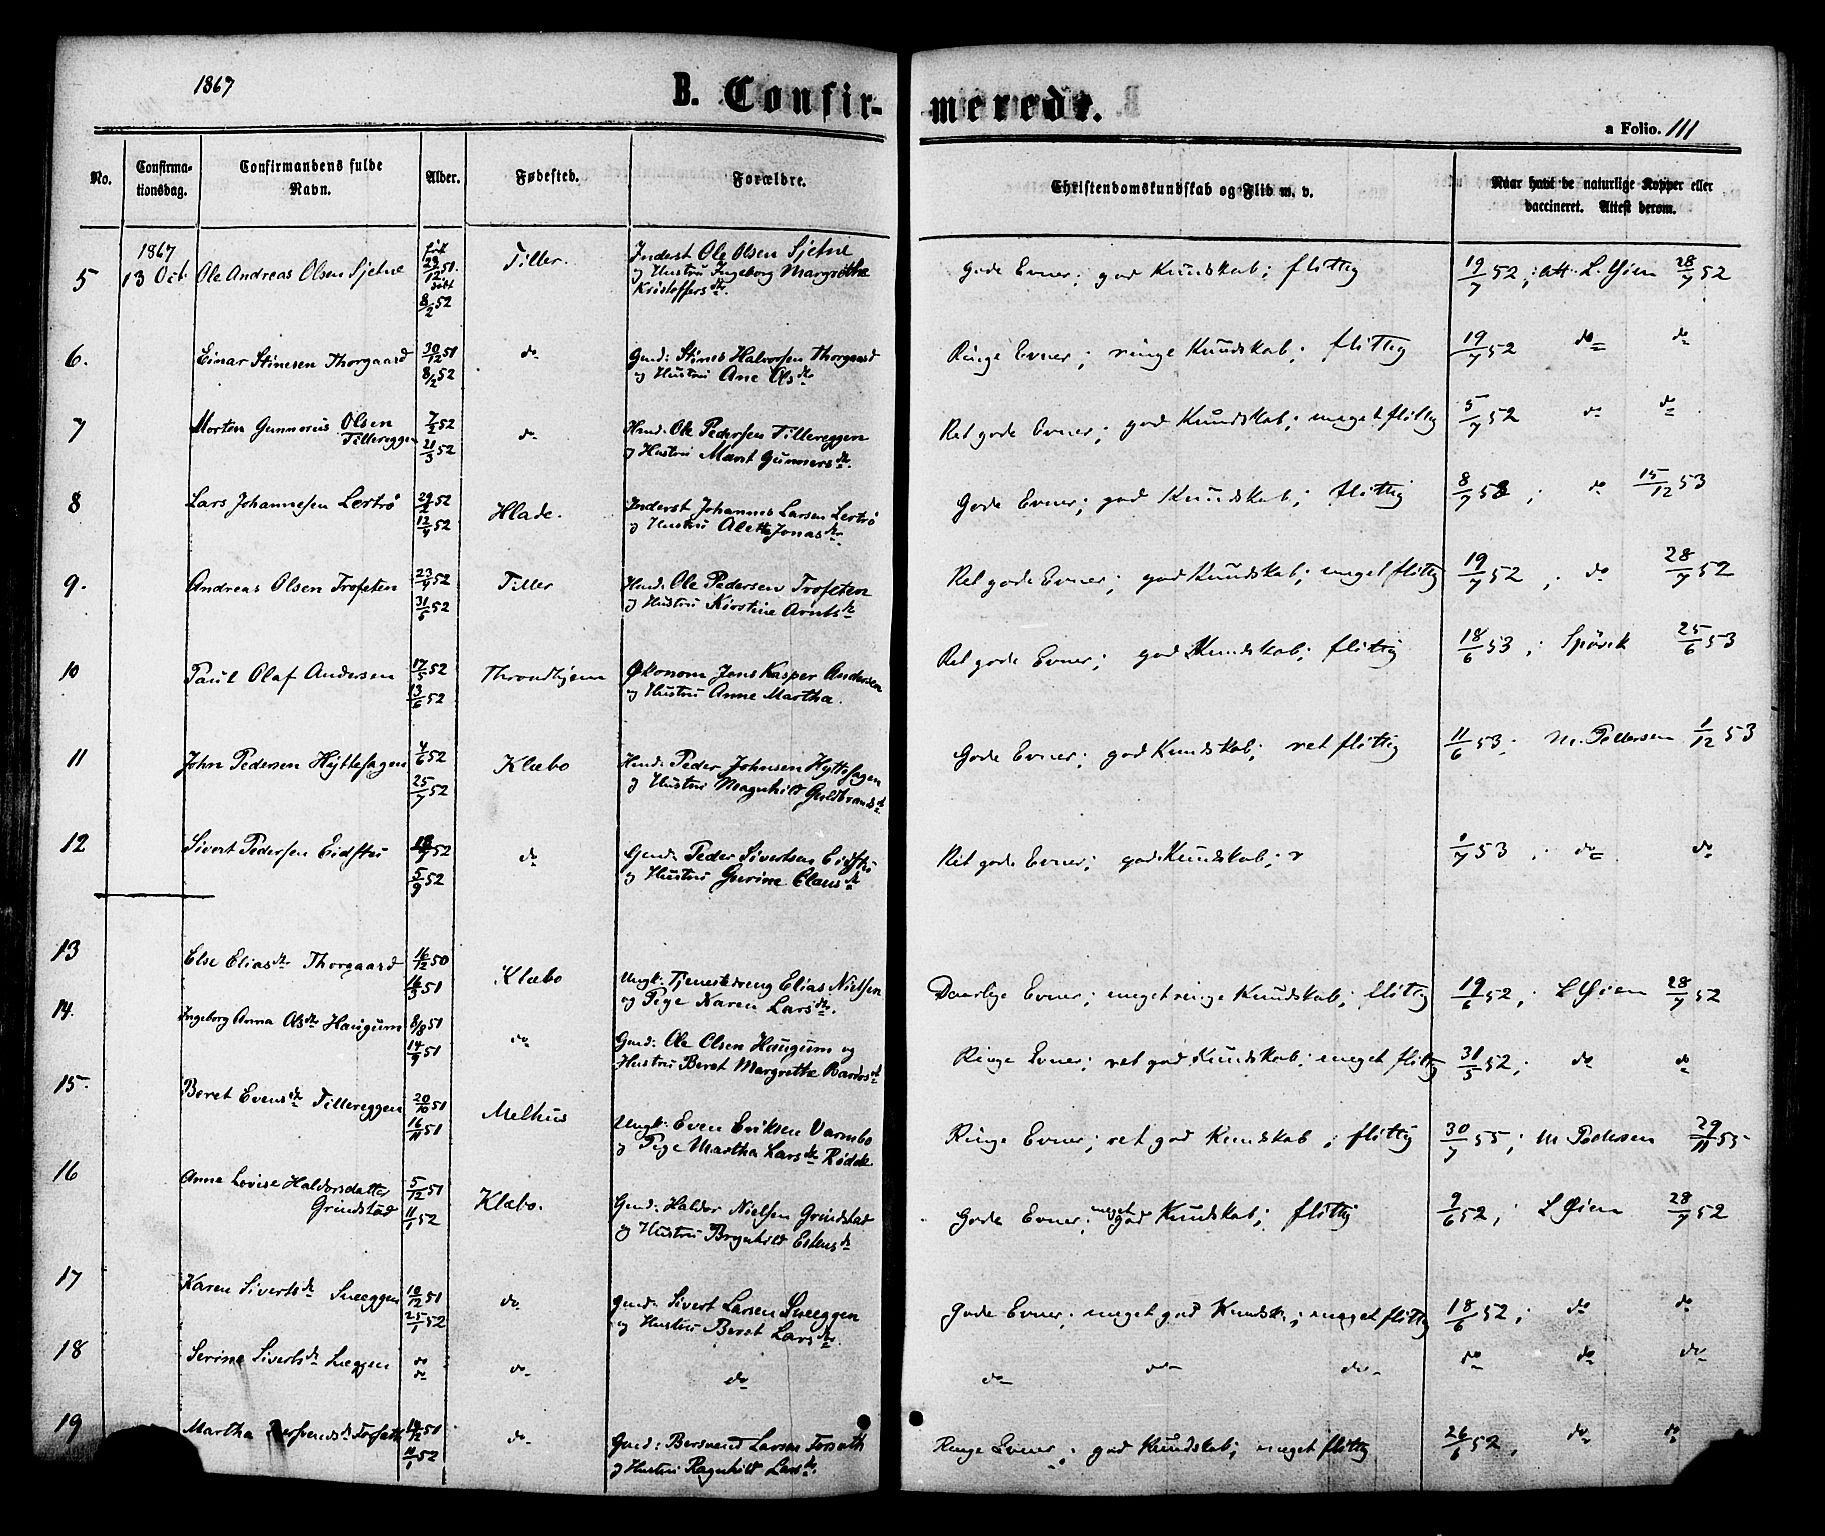 1867
B. Confir-
merede.
a Folio. 111
No.
Confirma-
tionsdag.
Confirmandens fulde
Navn.
Alder.
Fødested.
Forældre.
Christendomskundskab og Flid m. v.
Naar havt de naturlige Kopper eller
vaccineret. Attest derom.
5 1867 13 Oct. Ole Andreas Olsen Sjetne født 29/12 51. døbt 8/2 52 Tiller. Inderst Ole Olsen Sjetne
og Hustru Ingeborg Margrethe
Kristoffersdtr. Gode Evner; god Kundskab; flittig 19/7 52; att. L. Øien 28/7 52
6. Einar Stinesen Thorgaard 30/12 51 8/2 52 do Gmd: Stines Halvorsen Thorgaard
og Hustru Ane Olsdtr Ringe Evner; ringe Kundskab; flittig 19/7 52 do do
7 Morten Gunnerius Olsen
Tillereggen 7/2 52 21/3 52 do Hmd: Ole Pedersen Tillereggen
og Hustru Marit Gunnersdtr. Ret gode Evner; god Kundskab; meget flittig 5/7 52 do do
8 Lars Johannesen Lertrø 29/2 52 12/4 52 Hlade. Inderst Johannes Larsen Lertrø
og Hustru Aletta Jonasdtr. Gode Evner; god Kundskab; flittig 8/7 53; do 15/12 53
9. Andreas Olsen Trofeten 23/4 52 31/5 52 Tiller Hmd: Ole Pedersen Trofeten
og Hustru Kirstine Arntsdtr Ret gode Evner; god Kundskab; meget flittig 19/7 52; do 28/7 52
10 Paul Olaf Andersen 17/5 52 13/6 52 Throndhjem Økonom Jens Kasper Andersen
og Hustru Anne Martha. Ret gode Evner; god Kundskab; flittig 18/6 53; Spörck 25/6 53
11 John Pedersen Hyttefagen 4/6 52 25/7 52 Klæbo Hmd: Peder Johnsen Hyttefagen
og Hustru Magnhild Guldbrandsdtr Gode Evner; god Kundskab; ret flittig 11/6 53; M. Pedersen 1/12 53
12 Sivert Pedersen Eidstu 18/7 52 5/9 52 do Gmd: Peder Sivertsen Eidstu
og Hustru Gurine Clausdtr Ret gode Evner; god Kundskab; 1/7 53; do do
13 Else Eliasdtr Thorgaard 16/12 50 16/3 51 Klæbo Ungk: Tjenestedreng Elias Nielsen
og Pige Karen Larsdtr. Daarlige Evner; meget ringe Kundskab; flittig 19/6 52; L Øien 28/7 52
14. Ingeborg Anna Olsdtr Haugum 8/8 51 14/9 51 do Gmd: Ole Olsen Haugum og
Hustru Beret Margrethe Bardosdtr Ringe Evner; ret god Kundskab; meget flittig 31/5 52; do do
15. Beret Evensdtr Tillereggen 20/10 51 16/11 51 Melhus Ungk: Even Eriksen Varmbo
og Pige Martha Larsdtr Rødde Ringe Evner; ret god Kundskab; flittig 30/7 55; M Pedersen 29/11 55
16 Anne Lovise Haldorsdatter
Grindstad 5/12 51 11/1 52 Klæbo. Gmd: Haldor Nielsen Grindstad
og Hustru Brynhild Estensdtr Gode Evner; meget god Kundskab; flittig 9/6 52; L Øien 28/7 52
17 Karen Sivertsdtr Sneeggen 10/12 51 25/1 52 do Gmd: Sivert Larsen Sneeggen
og Hustru Beret Larsdtr. Gode Evner; meget god Kundsk.; meget flittig 18/6 52; do do
18 Serine Sivertsdtr Sneeggen do do do do do do do do do do
19 Martha Bersvendsdtr Forsæth 10/12 51 11/1 52 do Gmd: Bersvend Larsen Forsæth
og Hustru Ragnhild Larsdtr. Ringe Evner; god Kundskab; meget flittig 26/6 52, do do